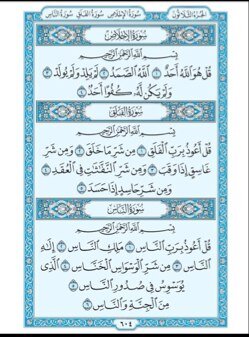 الجزء الثلاثون سورة الإخلاص سورة الفلق سورة الناس
سُورَةُ الإِخْلَاصِ
بِسْمِ اللَّهِ الرَّحْمَٰنِ الرَّحِيمِ
قُلْ هُوَ اللَّهُ أَحَدٌ ١ اللَّهُ الصَّمَدُ ٢ لَمْ يَلِدْ وَلَمْ يُولَدْ ٣
وَلَمْ يَكُن لَّهُ كُفُوًا أَحَدٌ ٤
سُورَةُ الفَلَقِ
بِسْمِ اللَّهِ الرَّحْمَٰنِ الرَّحِيمِ
قُلْ أَعُوذُ بِرَبِّ الْفَلَقِ ١ مِن شَرِّ مَا خَلَقَ ٢ وَمِن شَرِّ
غَاسِقٍ إِذَا وَقَبَ ٣ وَمِن شَرِّ النَّفَّاثَاتِ فِي الْعُقَدِ ٤
وَمِن شَرِّ حَاسِدٍ إِذَا حَسَدَ ٥
سُورَةُ النَّاسِ
بِسْمِ اللَّهِ الرَّحْمَٰنِ الرَّحِيمِ
قُلْ أَعُوذُ بِرَبِّ النَّاسِ ١ مَلِكِ النَّاسِ ٢ إِلَٰهِ
النَّاسِ ٣ مِن شَرِّ الْوَسْوَاسِ الْخَنَّاسِ ٤ الَّذِي
يُوَسْوِسُ فِي صُدُورِ النَّاسِ ٥
مِنَ الْجِنَّةِ وَالنَّاسِ ٦
٦٠٤